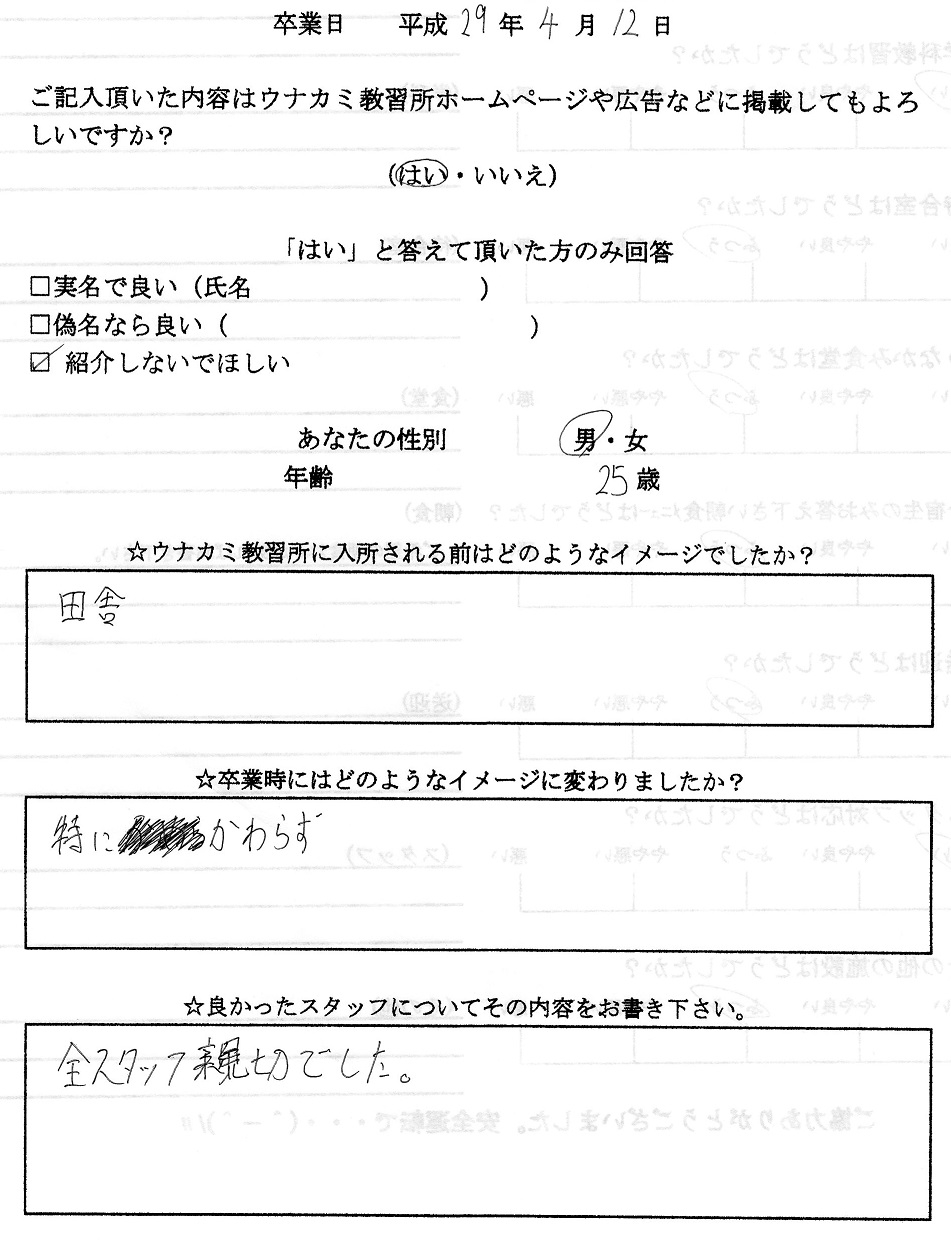 卒業日 平成29年4月12日
ご記入頂いた内容はウナカミ教習所ホームページや広告などに掲載してもよろ
しいですか？
(はい・いいえ)
「はい」と答えて頂いた方のみ回答
□実名で良い（氏名 ）
□偽名なら良い（ ）
☑紹介しないでほしい
あなたの性別 男・女
年齢 25歳
☆ウナカミ教習所に入所される前はどのようなイメージでしたか？
田舎
☆卒業時にはどのようなイメージに変わりましたか？
特に かわらず
☆良かったスタッフについてその内容をお書き下さい。
全スタッフ親切でした。